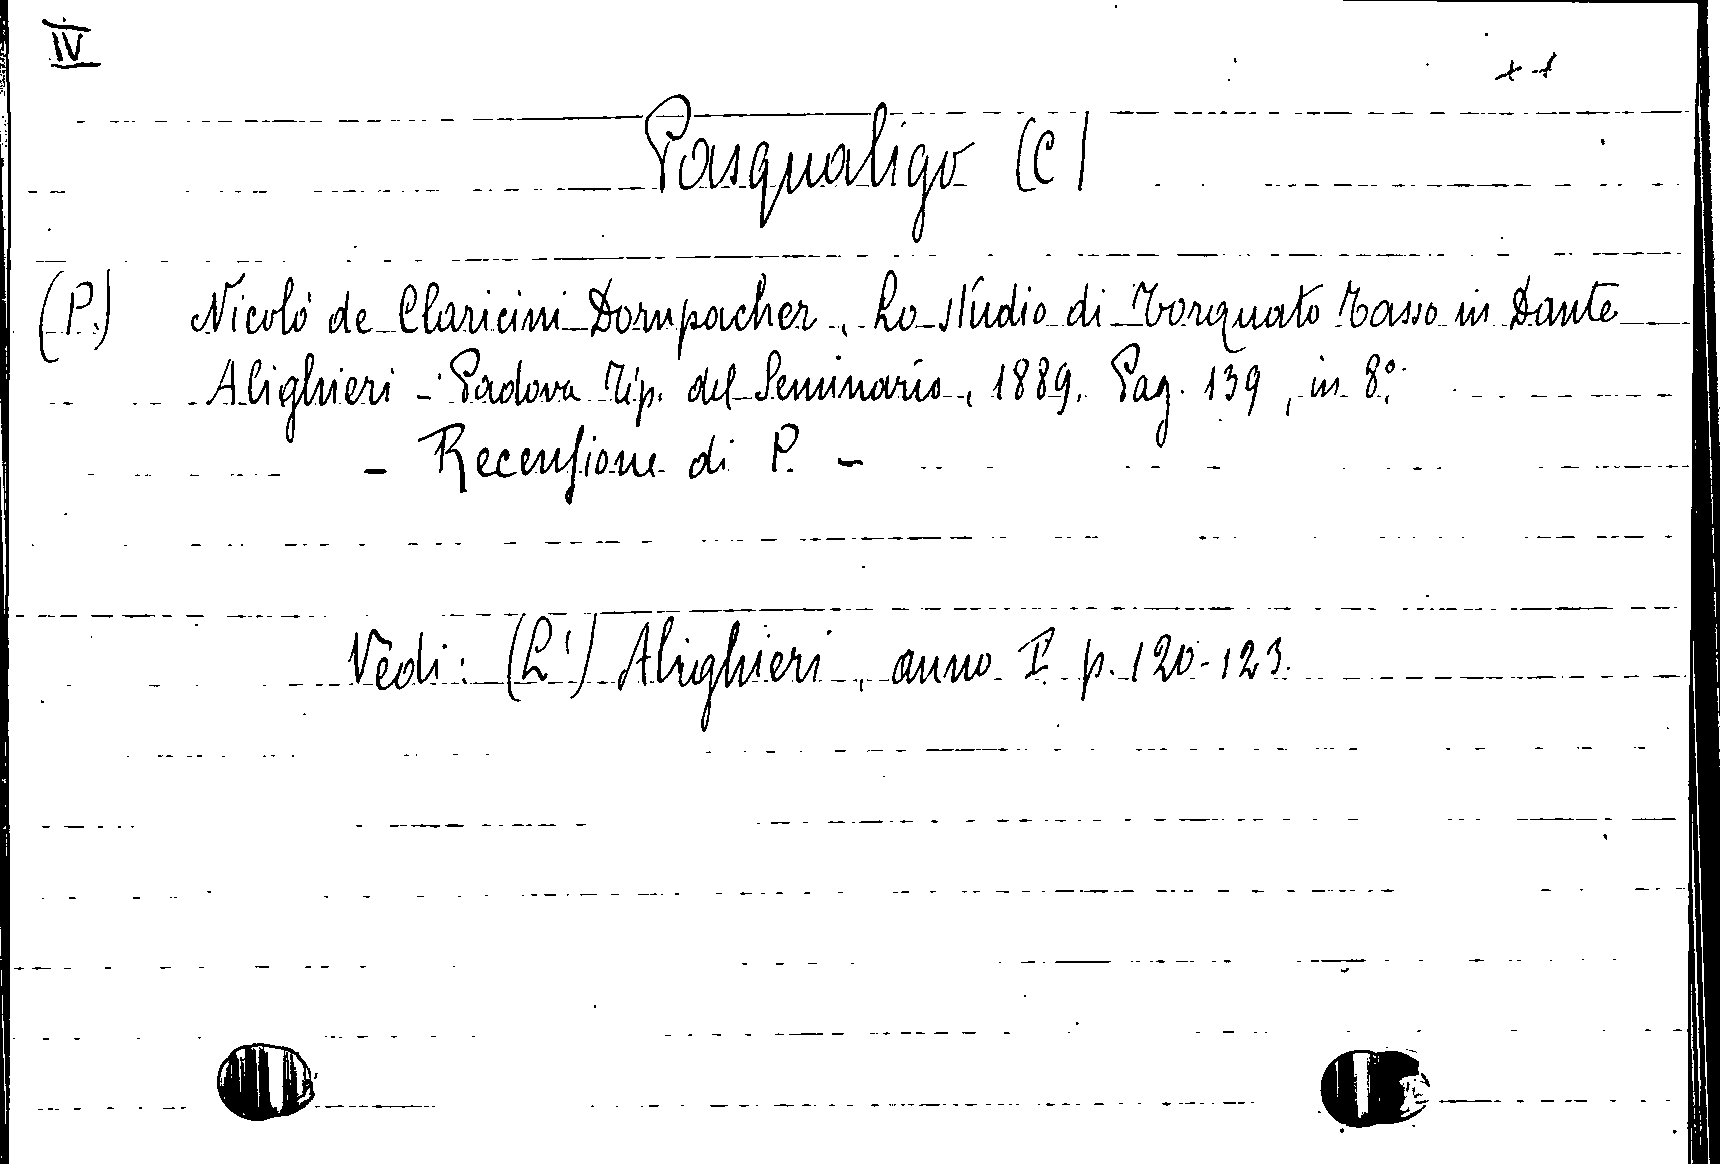 IV
Pasqualigo (C)
(P.) Nicolò de Claricini Dornpacher, Lo studio di Torquato Tasso in Dante
Alighieri - Padova Tip. del Seminario, 1889. Pag. 139, in 8º.
- Recensione di P. -
Vedi: (L') Alighieri, anno I p. 120-123.